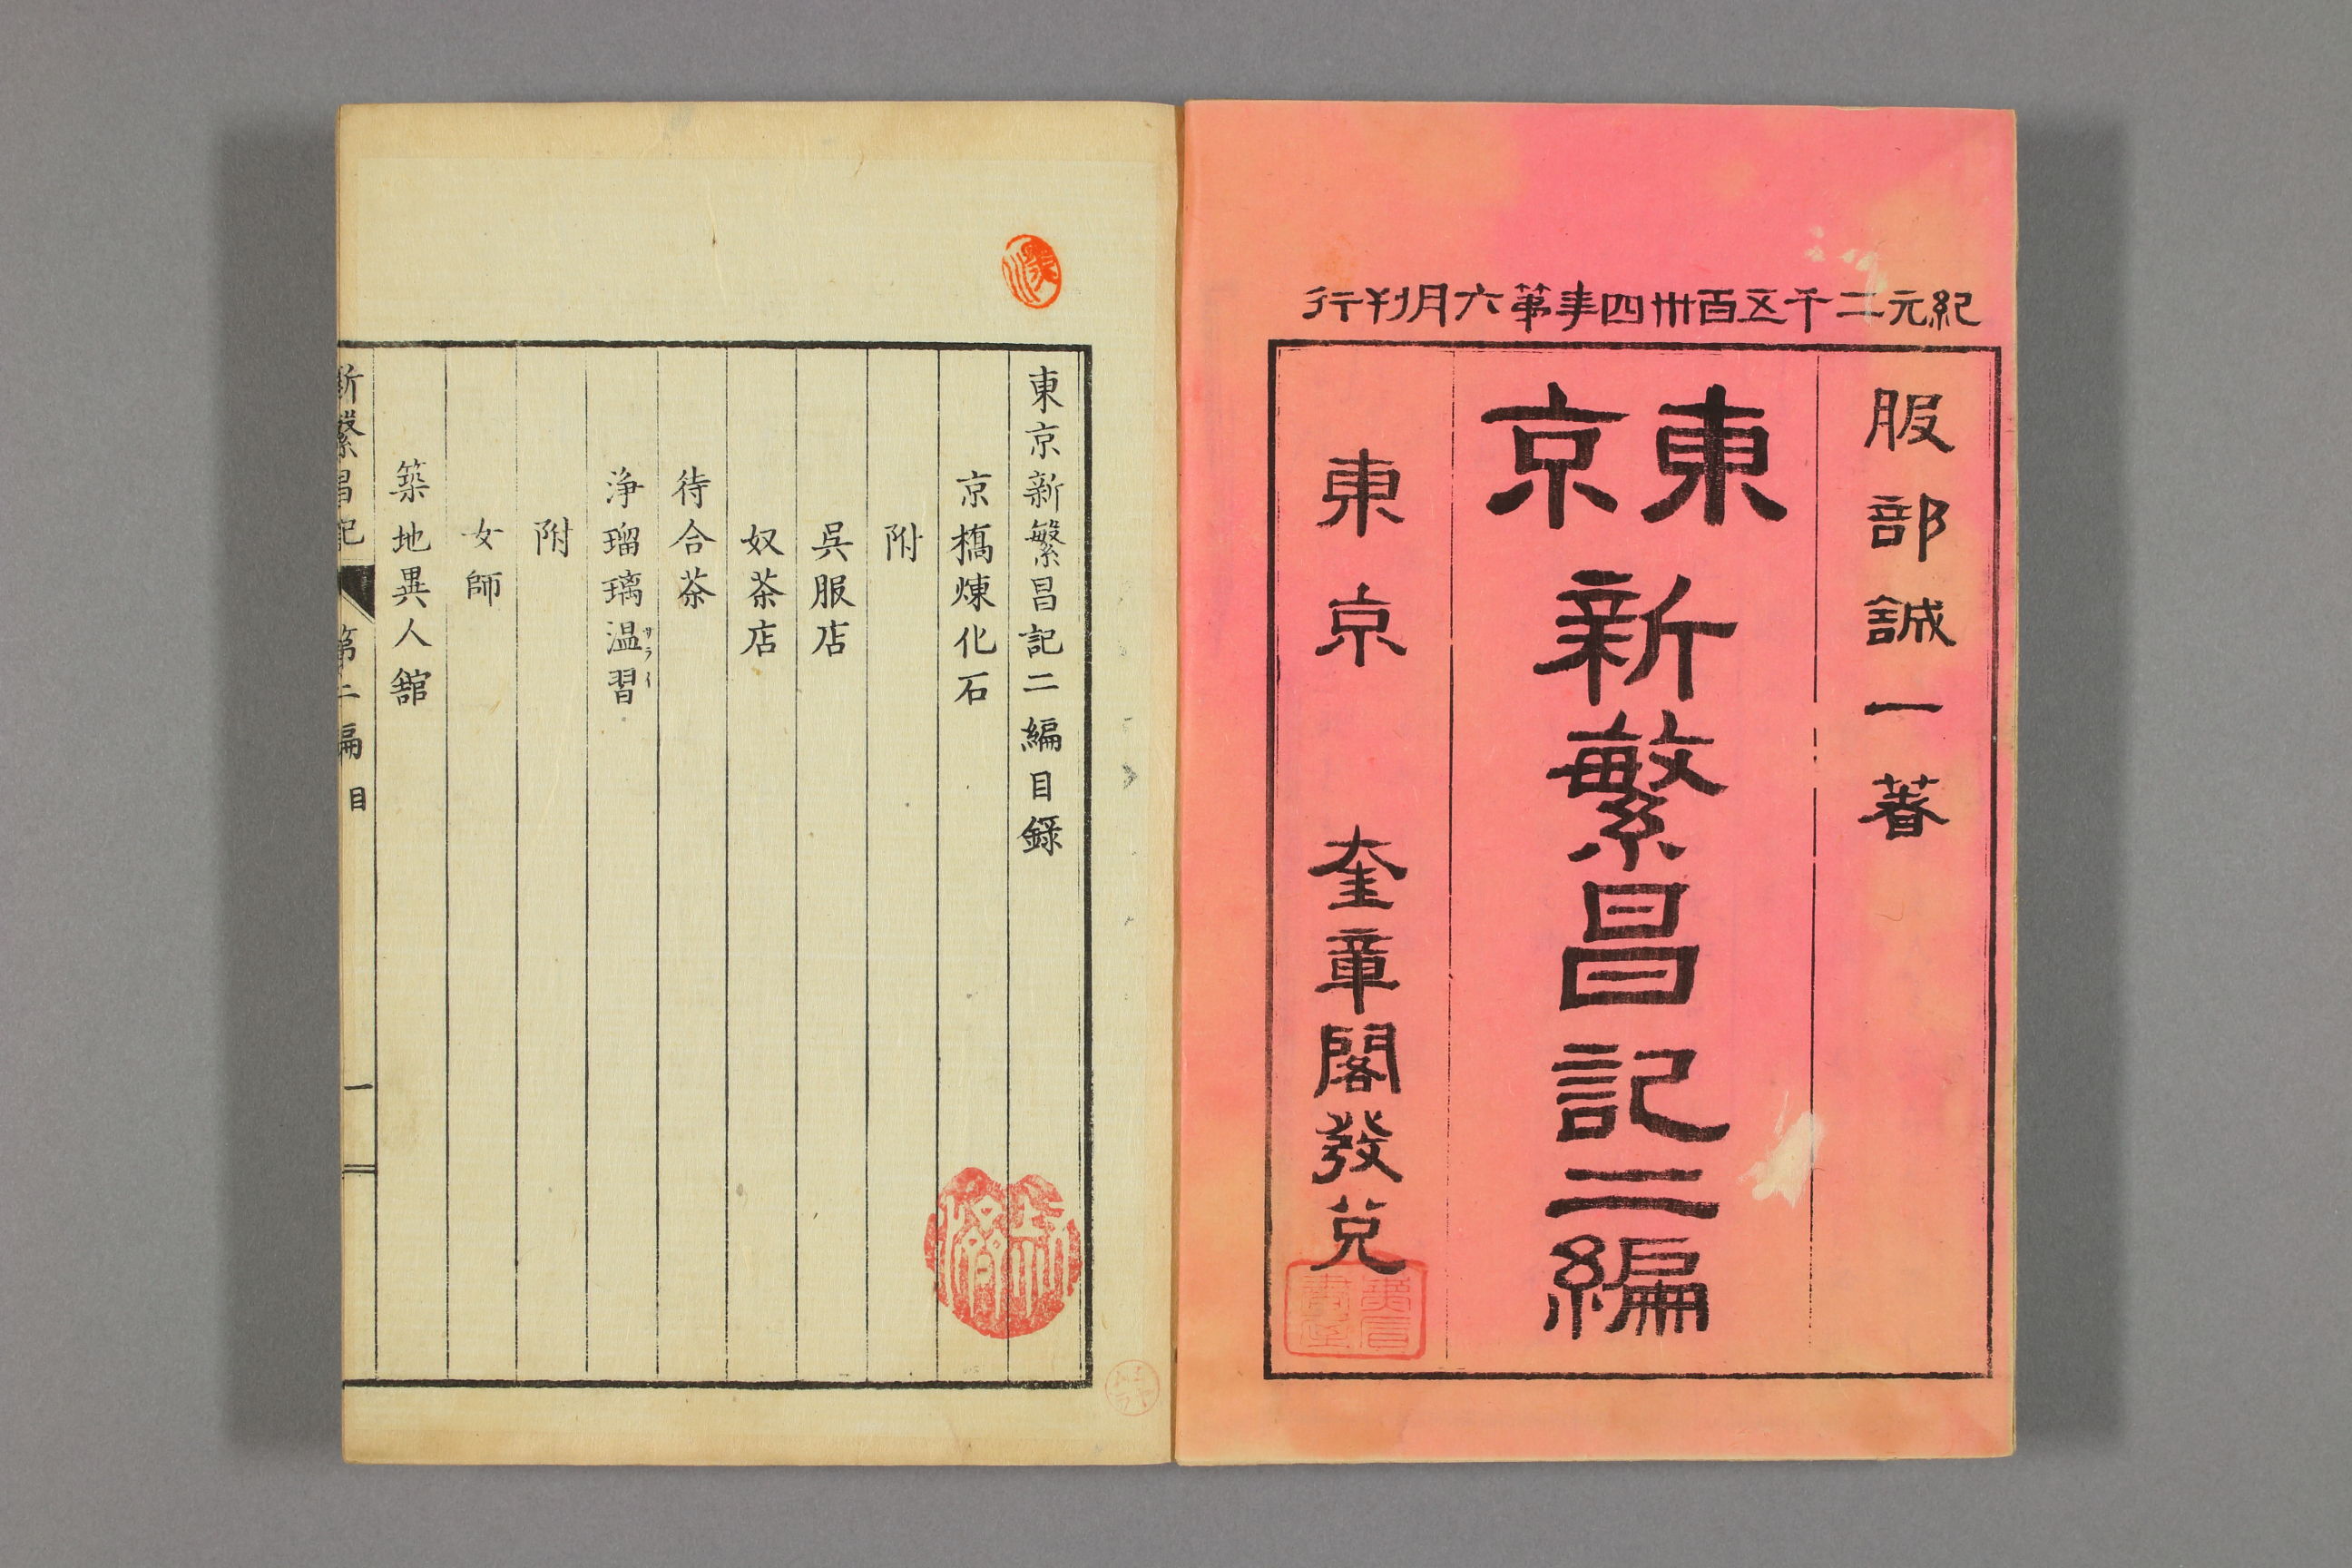 紀元二千五百卅四年第六月刊行
服部誠一著
東京新繁昌記二編
東京 奎章閣發兌
東京新繁昌記二編目録
京橋煉化石
附
呉服店
奴茶店
待合茶
浄瑠璃温習
サラヘ
附
女師
築地異人舘
新繁昌記 第二編 目 一